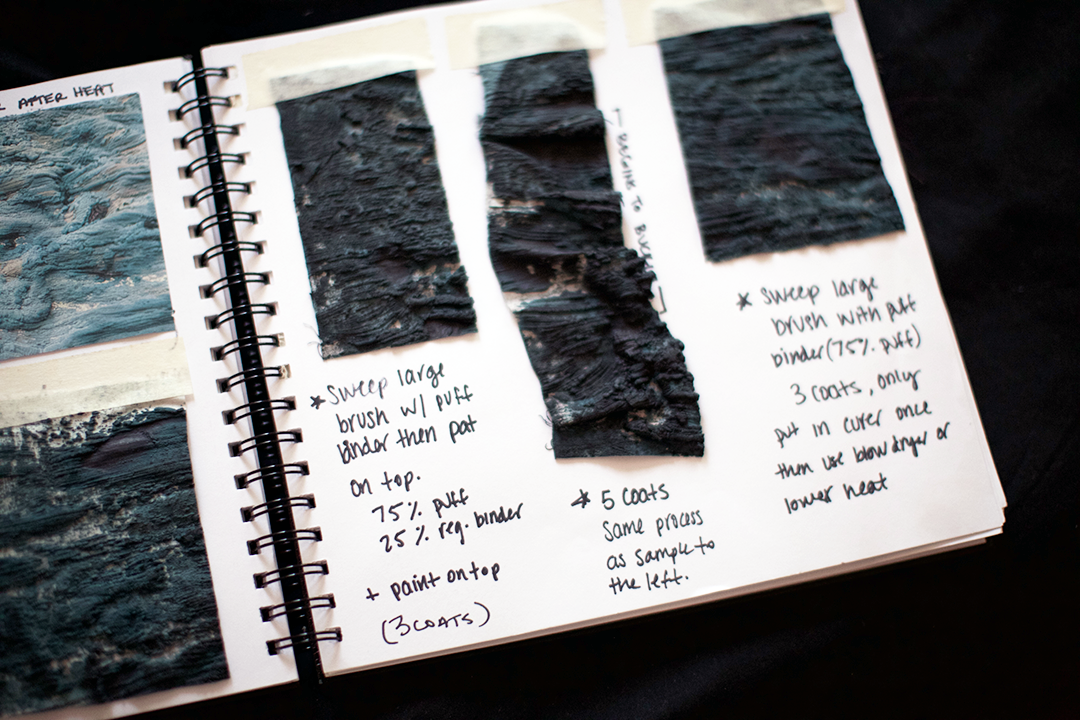 AFTER HEAT
* Sweep large
brush w/ puff
binder then pat
on top.
75% puff
25% reg. binder
+ paint on top
(3 COATS)
BEGINS TO BUCKLE
* 5 coats
Same process
as sample to
the left.
* Sweep large
brush with puff
binder (75% puff)
3 coats, only
put in curer once
then use blow dryer or
lower heat